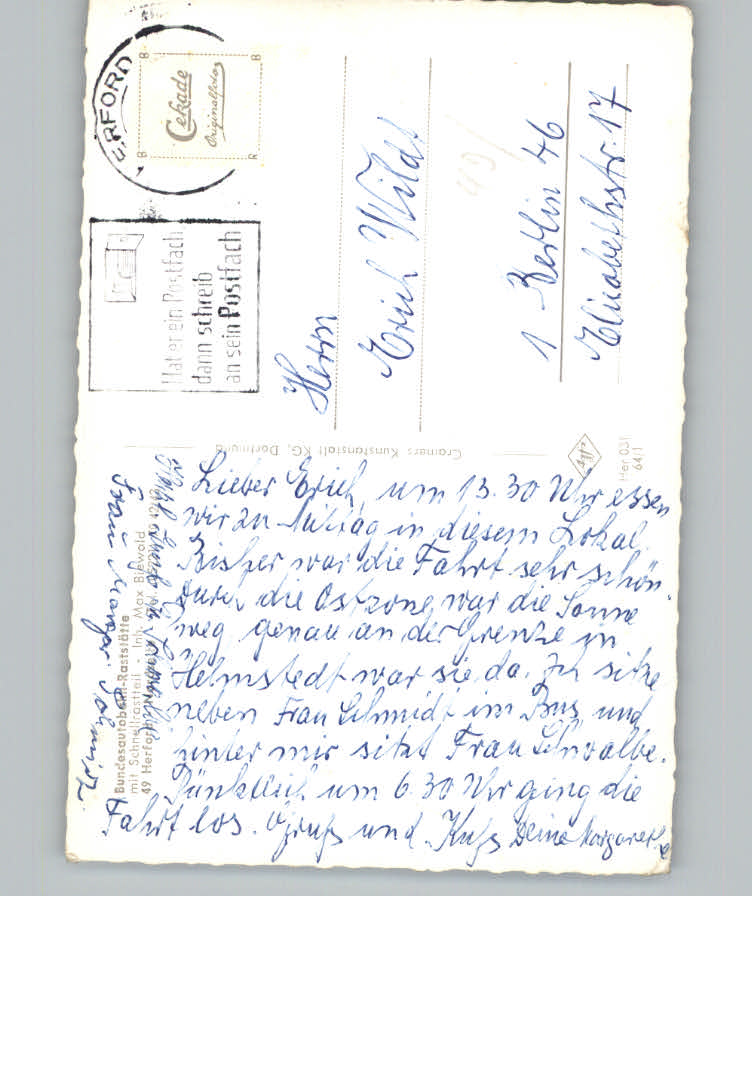 Lieber Erich, um 13.30 Uhr essen
wir zu Mittag in diesem Lokal.
Bisher war die Fahrt sehr schön
durch die Ostzone war die Sonne
weg, genau an der Grenze zu
Helmstedt war sie da. Ich sitze
neben Frau Schmidt im Bus und
hinter mir sitzt Frau Schwalbe.
Pünktlich um 6.30 Uhr ging die
Fahrt los. Gruß und Kuß Deine Margarete
Frau Schmidt
Bundesautobahn-Raststätte
mit Schnellrastteil - Inh. Max Biewald
49 Herford
Cramers Kunstanstalt KG, Dortmund
Her 031
64/1
HERFORD
Hat er ein Postfach
dann schreib
an sein Postfach
B B
Cekade
Originalfoto
B R
Herrn
Erich Wildt
1 Berlin 46
Elisabethstr. 17